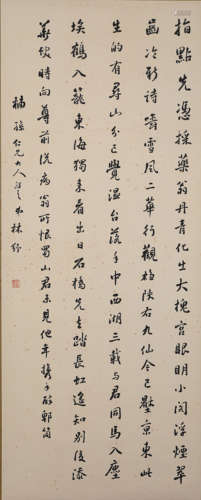 指點先憑採藥翁丹青化出大槐宮眼明小閣浮煙翠
齒冷新詩嚼雪風二華行觀雄陝右九仙今已壓京東此
生的有尋山分已覺溫台落手中西湖三載與君同馬入塵
埃鶴入籠東海獨來看出日石橋先去踏長虹遙知別後添
華髮時向尊前說病翁所恨蜀山君未見他年攜手醉郫筒
仁兄大人正之弟林紓